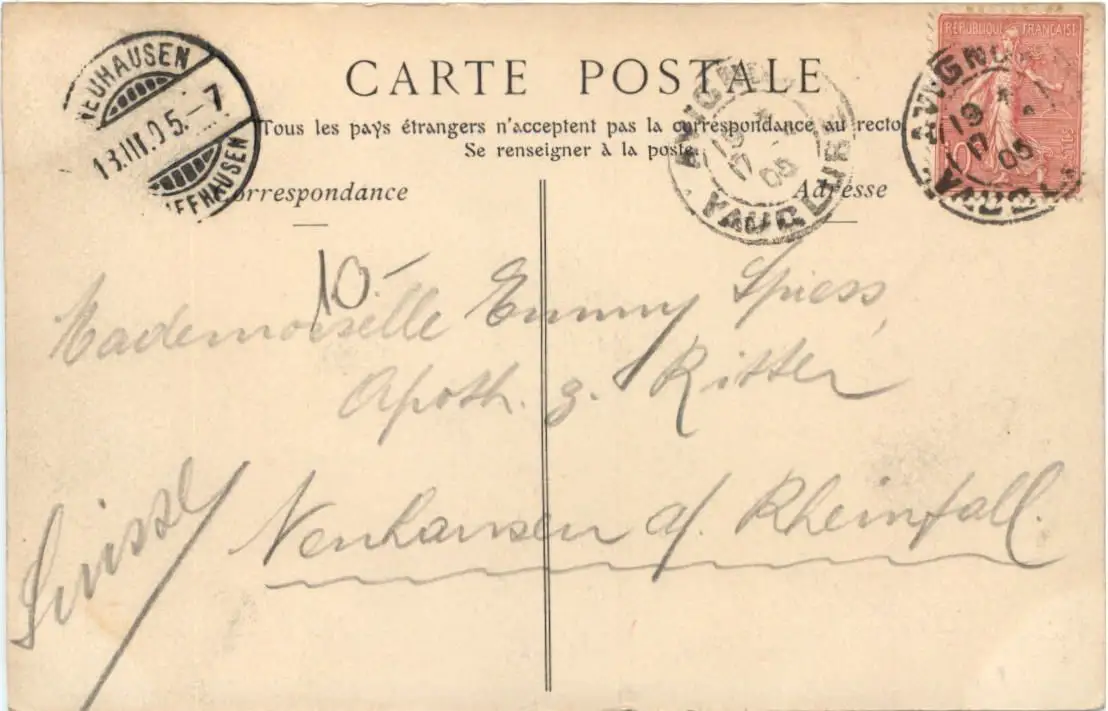 CARTE POSTALE
Tous les pays étrangers n'acceptent pas la correspondance au recto
Se renseigner à la poste.
Correspondance
Adresse
NEUHAUSEN
13.III.05.-7
SCHAFFHAUSEN
AVIGNON
VAUCLUSE
05
RÉPUBLIQUE FRANÇAISE
10
AVIGNON
05
10-
Mademoiselle Emmy Spiess,
Apoth. z. Ritter
Neuhausen a/. Rheinfall.
Suisse